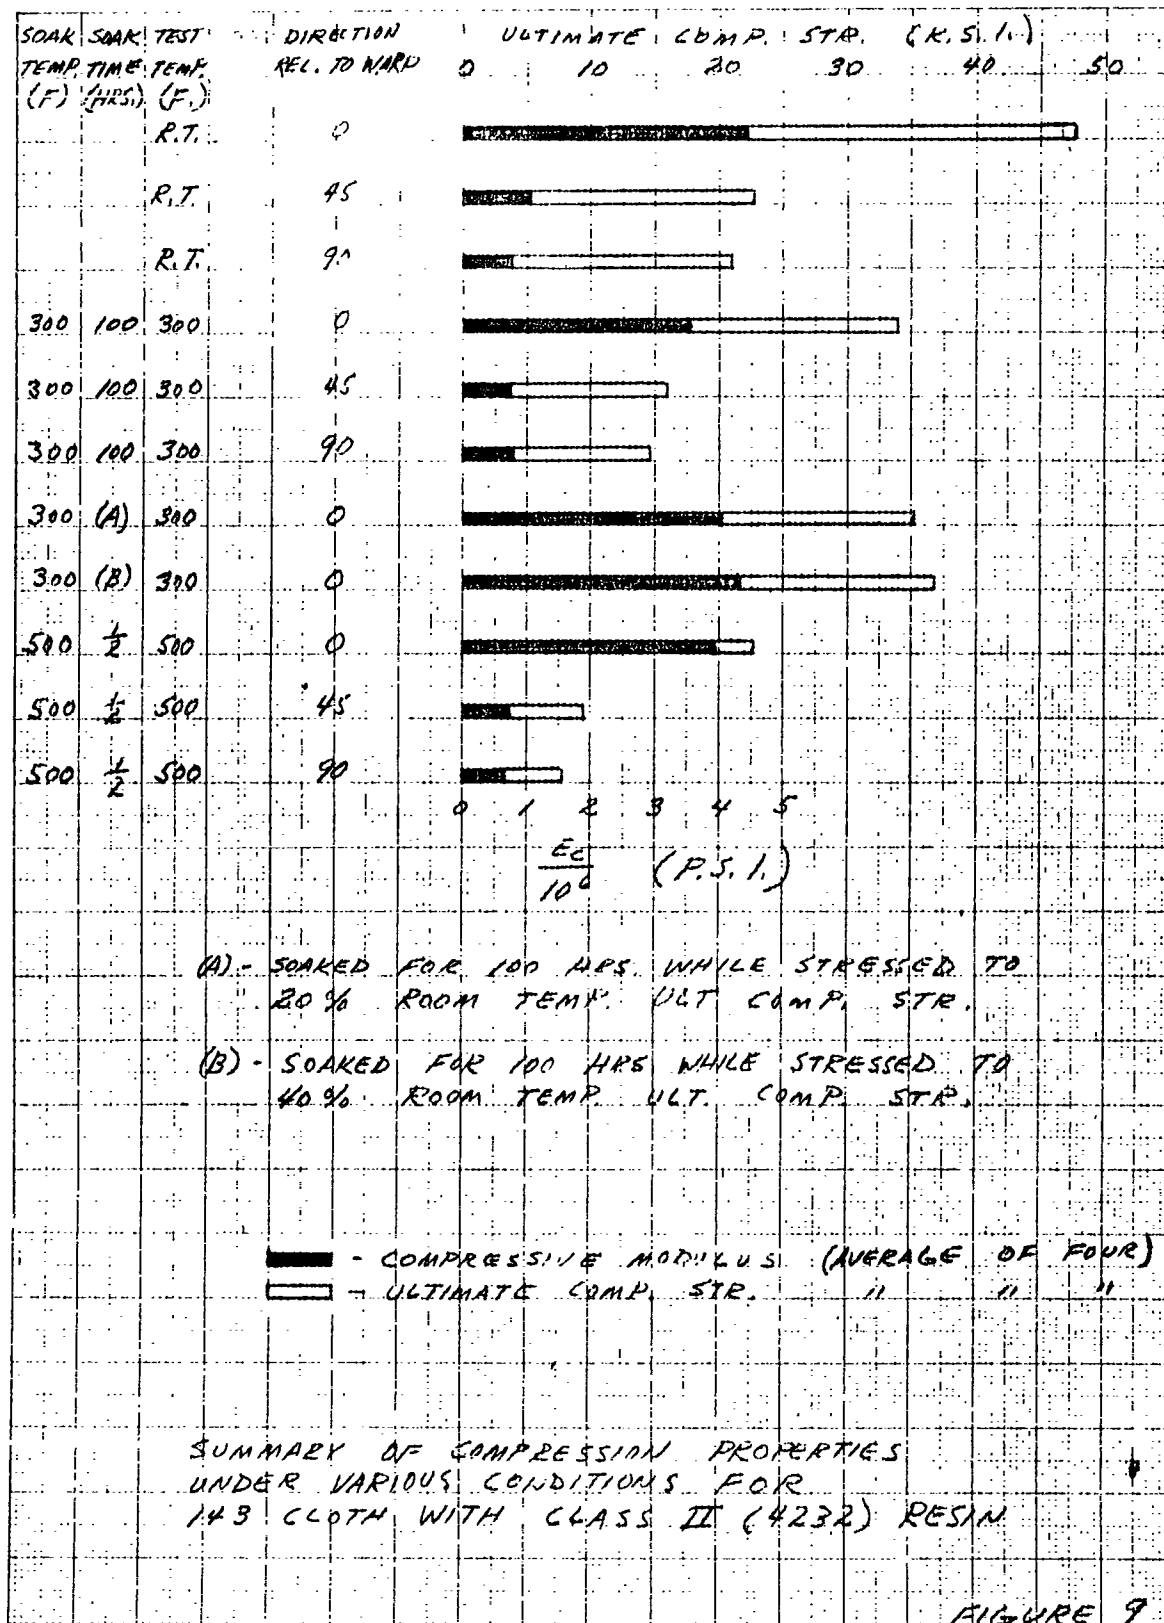 SOAK SOAK TEST DIRECTION ULTIMATE COMP. STR. (K.S.I.)
TEMP. TIME TEMP. REL. TO WARP 0 10 20 30 40 50
(F) (HRS.) (F.)
R.T. 0
R.T. 45
R.T. 90
300 100 300 0
300 100 300 45
300 100 300 90
300 (A) 300 0
300 (B) 300 0
500 1/2 500 0
500 1/2 500 45
500 1/2 500 90
0 1 2 3 4 5
Ec/10^6 (P.S.I.)
(A) - SOAKED FOR 100 HRS. WHILE STRESSED TO
20% ROOM TEMP. ULT COMP. STR.
(B) - SOAKED FOR 100 HRS WHILE STRESSED TO
40% ROOM TEMP. ULT. COMP. STR.
- COMPRESSIVE MODULUS (AVERAGE OF FOUR)
- ULTIMATE COMP. STR. " " "
SUMMARY OF COMPRESSION PROPERTIES
UNDER VARIOUS CONDITIONS FOR
143 CLOTH WITH CLASS II (4232) RESIN
FIGURE 9